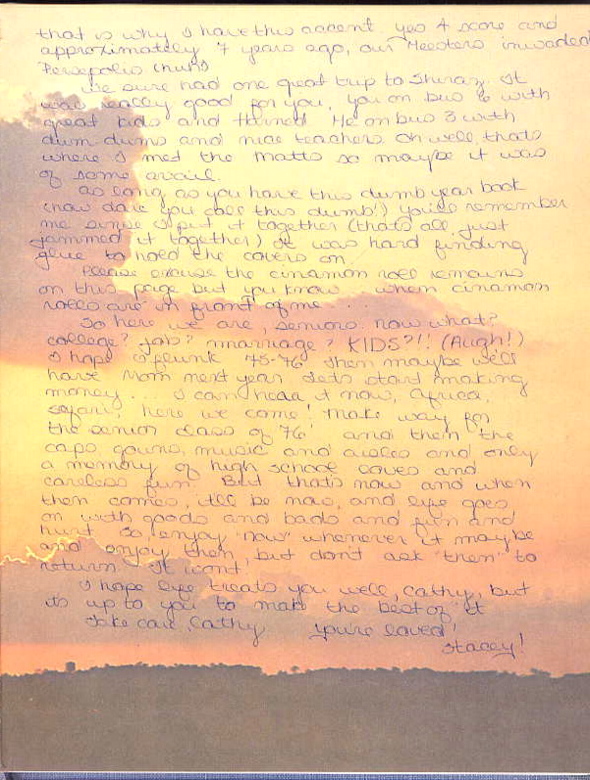 that is why I have this accent yes 4 score and
approximately 7 years ago, our Meesters invaded
Persepolis
We sure had one great trip to Shiraz. It
was really good for you, you on bus 6 with
great kids and Me on bus 3 with
dum-dums and nice teachers. Oh well, thats
where I met the Matts so maybe it was
of some avail.
as long as you have this dumb year book
(how dare you call this dumb!) you'll remember
me since I put it together (thats all, just
jammed it together) It was hard finding
glue to hold the covers on.
Please excuse the cinamon roll remains
on this page but you know when cinamon
rolls are in front of me ...
So here we are, seniors. now what?
college? job? marriage? KIDS?!! (Augh!)
I hope I flunk 75-76 then maybe we'll
have Mom next year. Lets start making
money ... I can hear it now, Africa,
safari, here we come! Make way for
the senior class of 76 and then the
caps, gowns, music and aisles and only
a memory of high school loves and
careless fun. But that's now and when
then comes, itll be now, and life goes
on with goods and bads and fun and
hurt. So, enjoy "now" whenever it maybe
and enjoy then, but don't ask "then" to
return. It won't!
I hope life treats you well, Cathy, but
its up to you to make the best of it
Take care, Cathy you're loved!
Stacey!